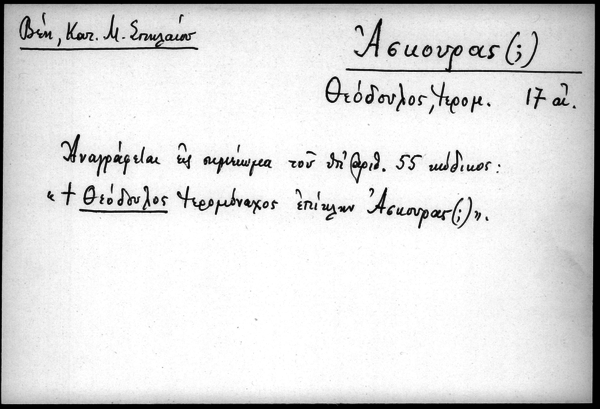 Βέη, Κατ. Μ. Σπηλαίου
Ἀσκουρας(;)
Θεόδουλος, Ἱερομ. 17 αἰ.
Ἀναγράφεται εἰς σημείωμα τοῦ ὑπ' ἀριθ. 55 κώδικος:
« † Θεόδουλος Ἱερομόναχος ἐπίκλην Ἀσκουρας(;)».